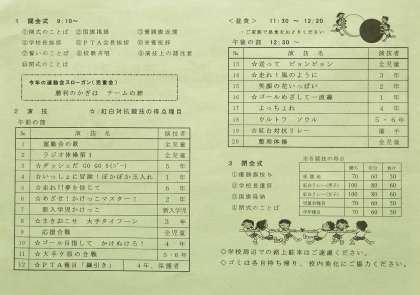 1 開会式 9:10〜
①開式のことば ②国旗掲揚 ③優勝旗返還
④学校長挨拶 ⑤PTA会長挨拶 ⑥来賓挨拶
⑦誓いのことば ⑧校歌斉唱 ⑨演技上の諸注意
⑩閉式のことば
今年の運動会スローガン(児童会)
勝利のかぎは チームの絆
2 演技 ☆:紅白対抗競技の得点種目
午前の部
№ 演技名 演技者
1 運動会の歌 全児童
2 ラジオ体操第1 全児童
3 ☆ダッシュだ GO GO 年
4 ☆いっしょに冒険!ぽかぽか玉入れ 1年
5 ☆走れ!夢を信じて 6年
6 ☆めざせ!かけっこマスター! 2年
7 新入学児かけっこ 新入学児
8 ☆まきおこせ 大手タイフーン 3年
9 応援合戦 全児童
10 ☆ゴール目指して かけぬけろ! 4年
11 ☆大手夕陣の合戦 5・6年
12 ☆PTA種目「綱引き」 4年、保護者
<昼食> 11:30 〜 12:20
ご家族で昼食をおとりください
午後の部 12:30 〜
№ 演技名 演技者
13 ☆送って ピョンピョン 全児童
14 ☆走れ!風のように 3年
15 笑顔の花いっぱい 2年
16 ☆ゴールめざして一直線 1年
17 よっちょれ 4年
18 ウルトラ ソウル 5・6年
19 ☆紅白対抗リレー 選手
20 整理体操 全児童
3 閉会式
①優勝旗授与
②学校長講評
③国旗降納
④閉式のことば
※各競技の得点
勝ち 引分 負け
70 60 50
紅白リレー(男子) 100 80 60
紅白リレー(女子) 100 80 60
70 60 50
70 60 50
○学校周辺での路上駐車はご遠慮ください。
○ゴミは各自持ち帰り、校内美化にご協力ください。